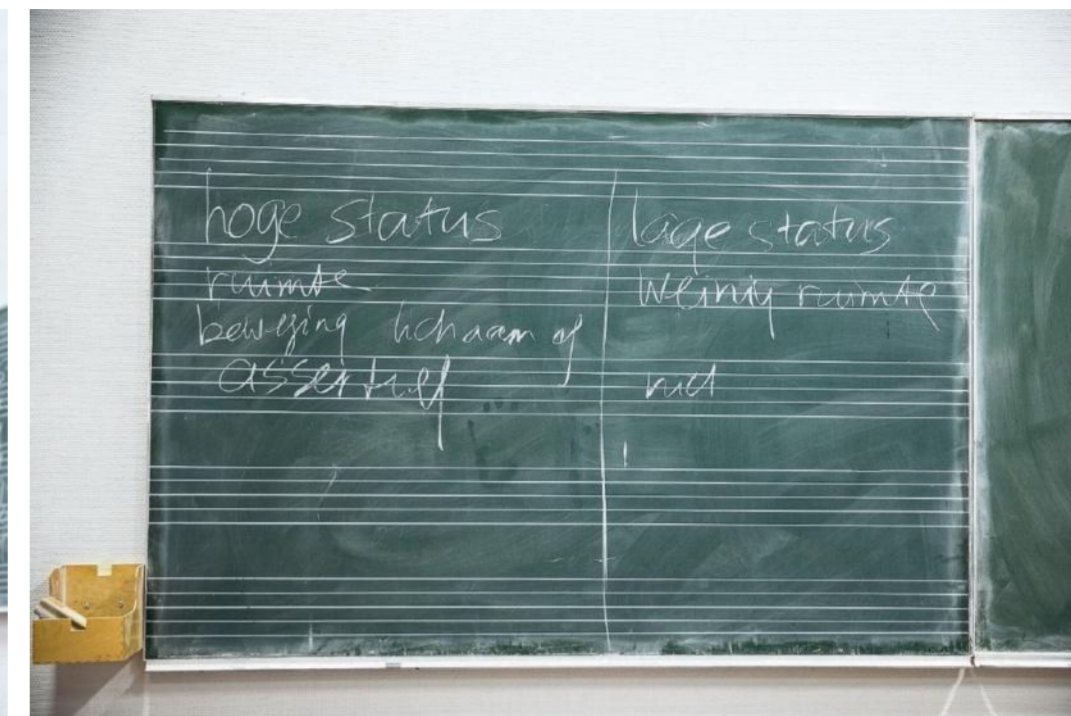 hoge status
ruimte
beweging lichaam of
assertief
lage status
weinig ruimte
niet